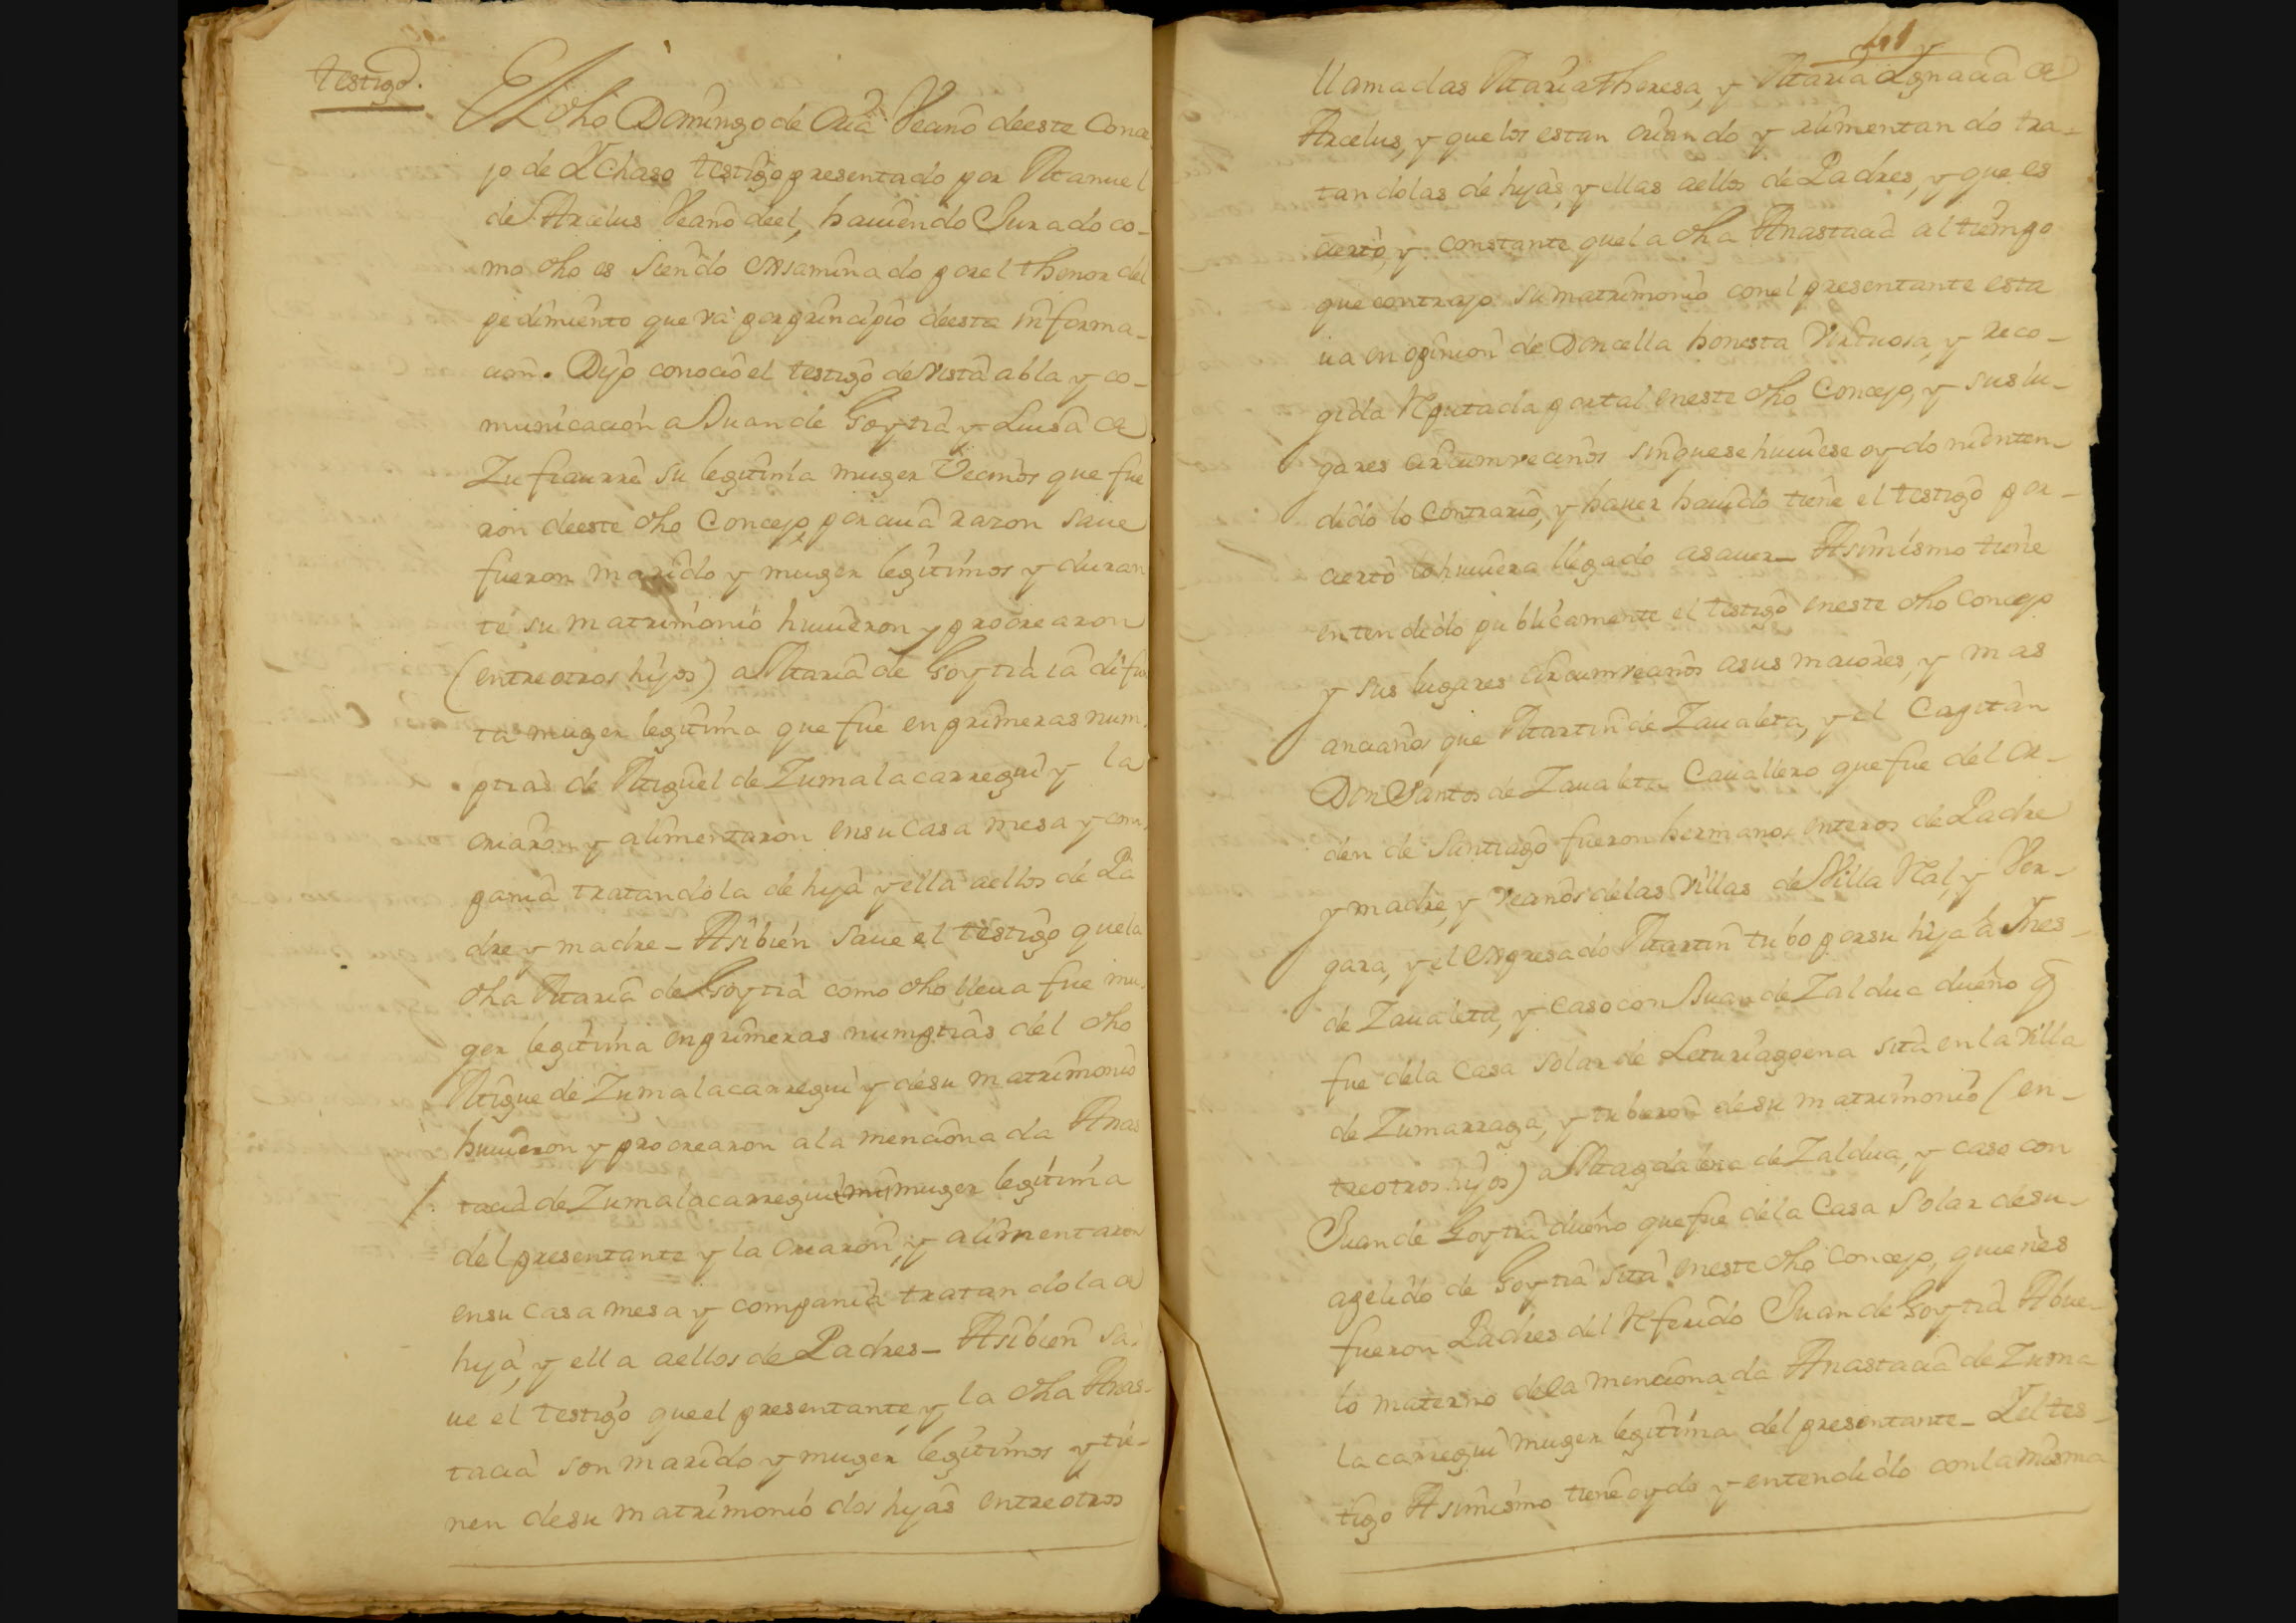 testigo.
El dho Domingo de Oria Vecino de este Conce
jo de Ychaso testigo presentado por Manuel
de Arcelus Vecino de el, haviendo Jurado co-
mo dho es siendo exsaminado por el thenor del
pedimiento que va por principio de esta informa-
cion. Dijo conocio el testigo de vista abla y co-
municacion a Juan de Goytia y Luisa de
Zufiaurre su legitima muger Vecinos que fue
ron de este dho Concejo, por cuia razon save
fueron marido y muger legitimos y duran
te su matrimonio huvieron y procrearon
(entre otros hijos) a Maria de Goytia ia difun
ta muger legitima que fue en primeras num.
ptias de Miguel de Zumalacarregui y la
criaron y alimentaron en su casa mesa y com.
pania tratandola de hija y ella a ellos de Pa
dre y madre - Asibien save el testigo que la
dha Maria de Goytia como dho lleva fue mu.
ger legitima en primeras numptias del dho
Migue de Zumalacarregui y de su matrimonio
huvieron y procrearon a la mencionada Anas
tacia de Zumalacarregui muger legitima
del presentante y la criaron, y alimentaron
en su casa mesa y compania tratandola de
hija, y ella a ellos de Padres - Asibien sa.
ve el testigo que el presentante, y la dha Anas-
tacia son marido y muger legitimos y tie-
nen de su matrimonio dos hijas entre otros
llamadas Maria Theresa, y Maria Ygnacia de
Arcelus, y que los estan criando y alimentando tra-
tandolas de hijas, y ellas a ellos de Padres, y que es
cierto, y constante que la dha Anastacia al tiempo
que contrajo su matrimonio con el presentante esta
va en opinion de Doncella honesta Virtuosa, y reco-
gida Reputada por tal en este dho Concejo, y sus lu-
gares circumvecinos sin que se huviese oydo ni enten-
dido lo contrario, y haver havido tiene el testigo por
cierto lo huviera llegado a saver - Asimismo tiene
entendido publicamente el testigo en este dho Concejo
y sus lugares circumvecinos a sus maiores, y mas
ancianos que Martin de Zavaleta, y el Capitan
Don Santos de Zavaleta Cavallero que fue del or-
den de Santiago fueron hermanos enteros de Padre
y madre, y vecinos de las Villas de Villa Real, y Ver-
gara, y el expresado Martin tubo por su hija a Ynes
de Zavaleta, y caso con Juan de Zaldua dueño q
fue de la Casa Solar de Leturiagoena sita en la villa
de Zumarraga, y tubieron de su matrimonio (en-
tre otros hijos) a Magdalena de Zaldua, y caso con
Juan de Goytia dueño que fue de la Casa Solar de su
apelido de Goytia sita en este dho Concejo, quienes
fueron Padres del Referido Juan de Goytia Abue-
lo materno de la mencionada Anastacia de Zuma
lacarregui muger legitima del presentante - Y el tes-
tigo Asimismo tiene oydo y entendido con la misma